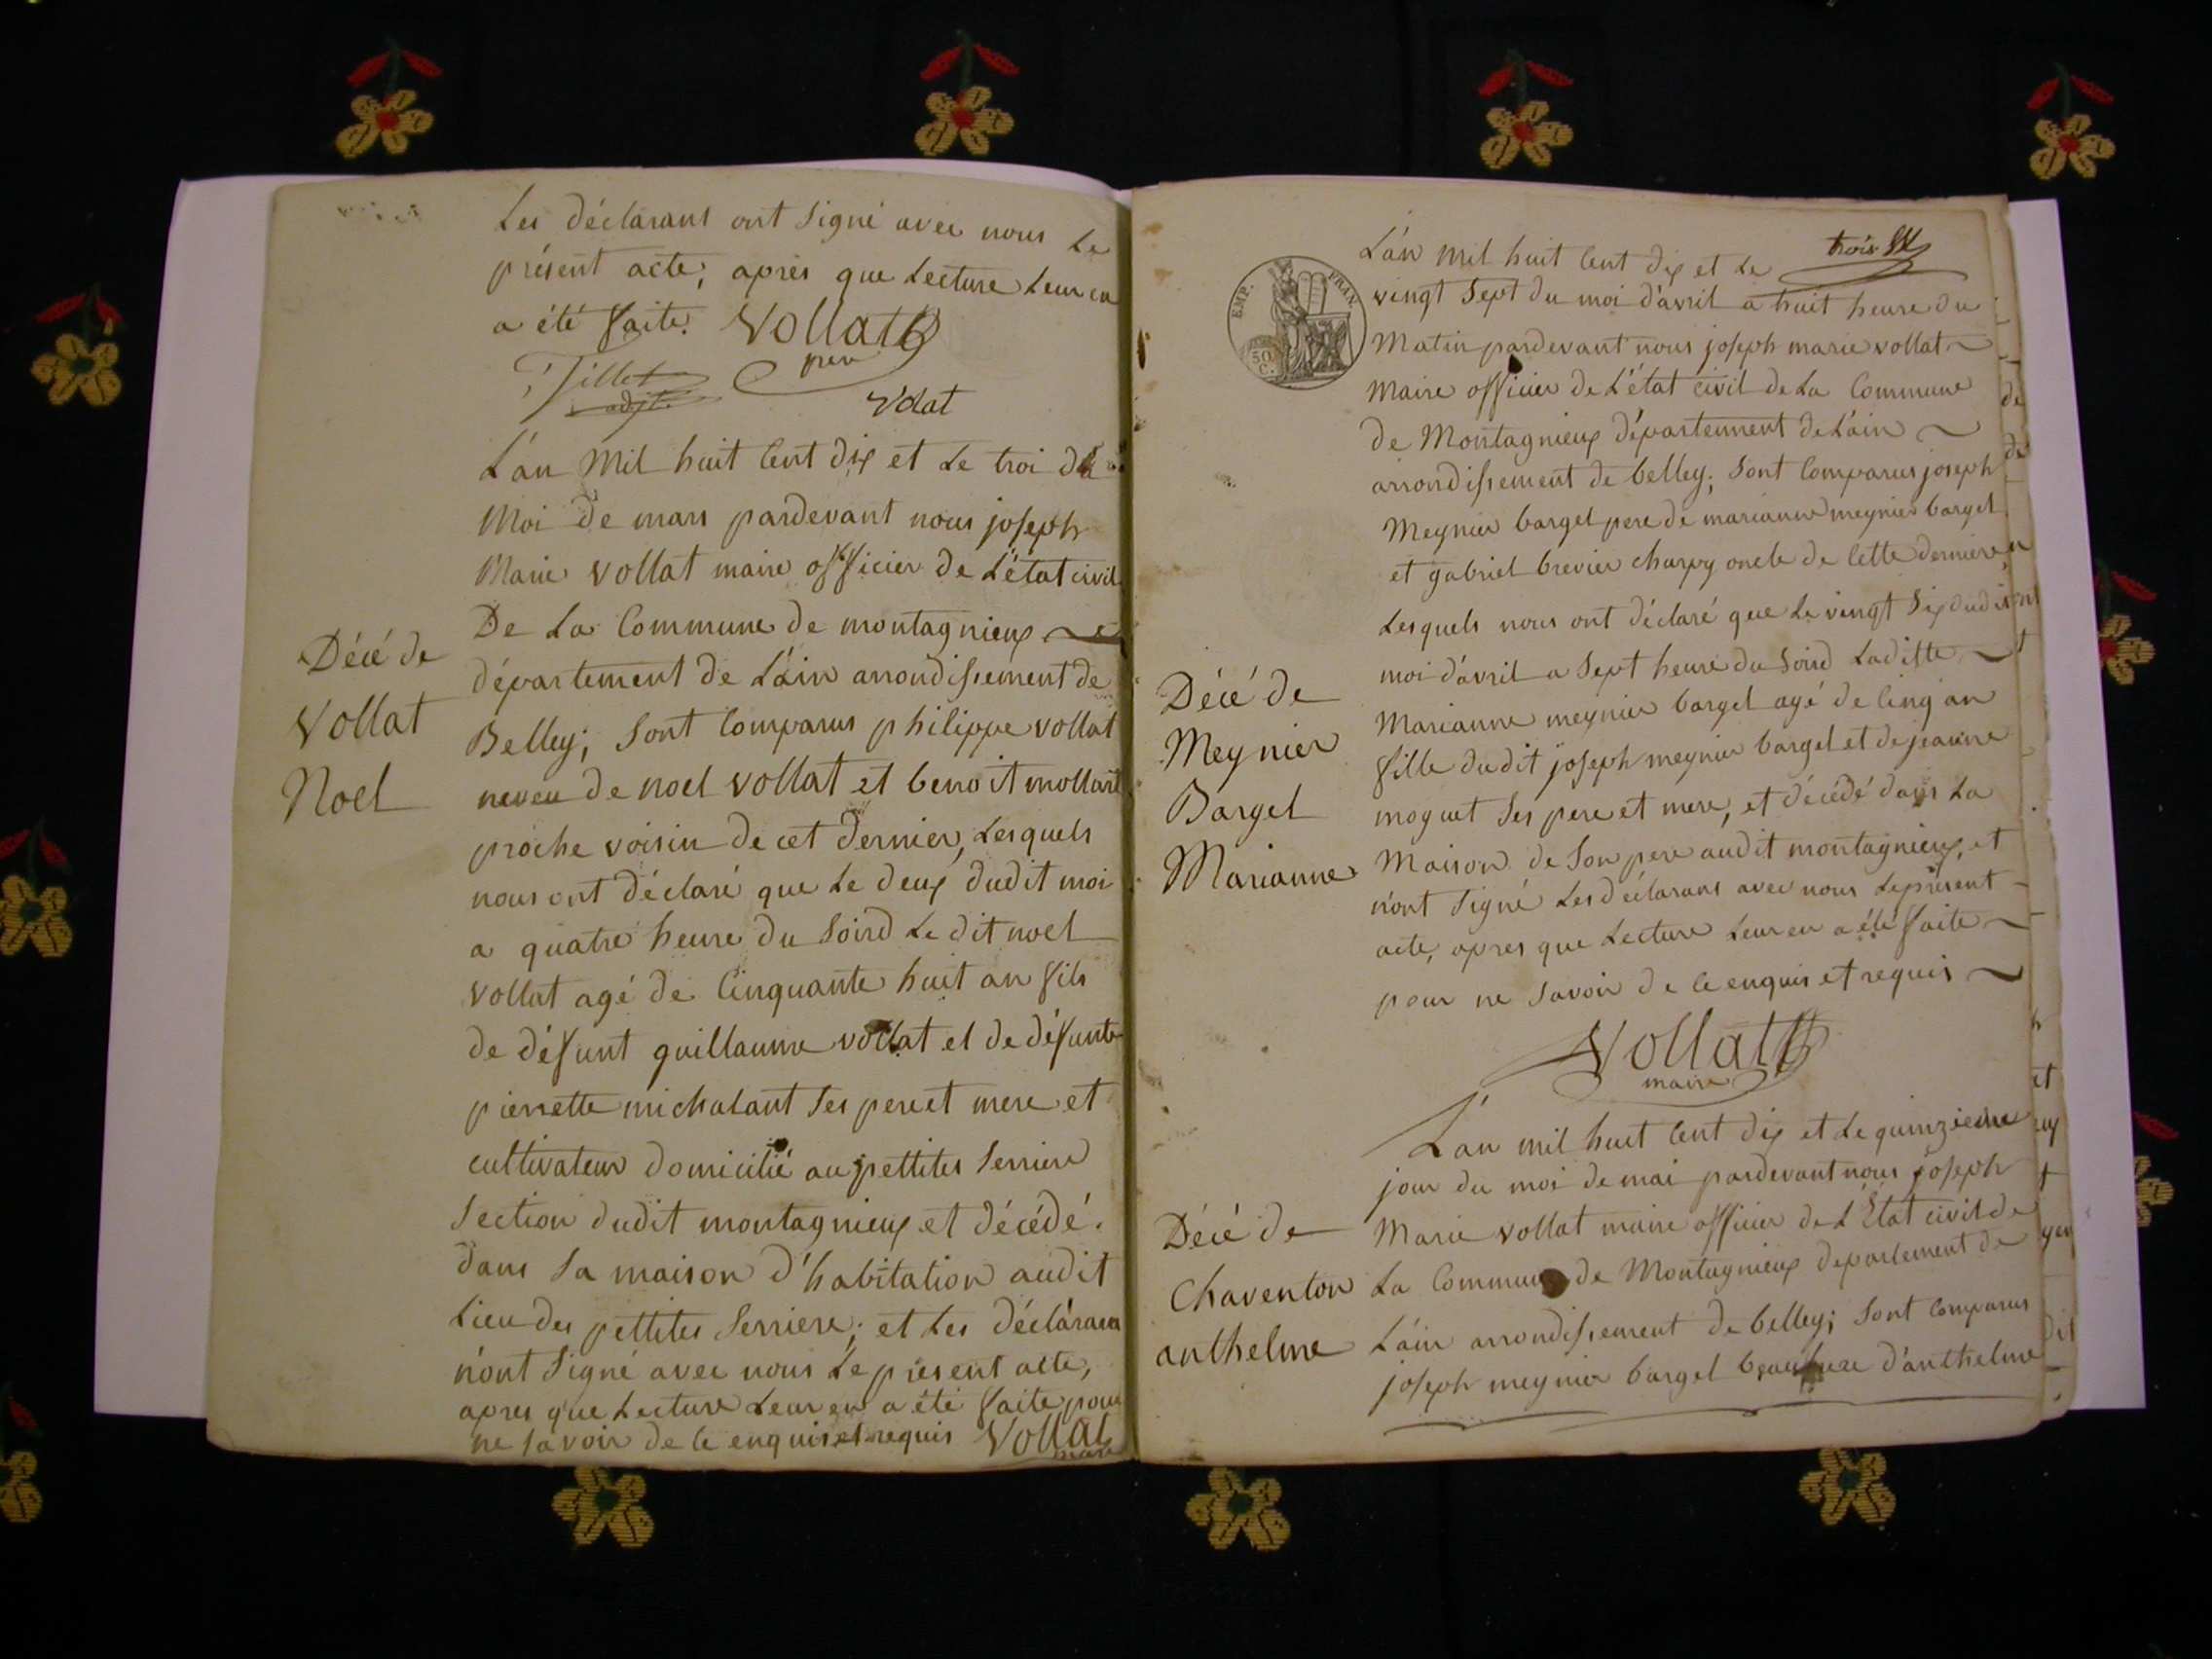 Les déclarans ont signé avec nous le
présent acte, après que Lecture Leur en
a été faite. Vollat
pere
Tillet
adjt.
Volat
L'an Mil huit Cent dix et Le troi du
Moi de mars pardevant nous joseph
Marie Vollat maire officier de L'état civil
De La Commune de montagnieux
département de L'ain arrondissement de
Belley; Sont Comparus philippe vollat
neveu de noel vollat et benoit mollard
proche voisin de cet dernier, Lesquels
nous ont déclaré que Le deux dudit moi
a quatre heure du Soird Le dit noel
Vollat agé de Cinquante huit an fils
de défunt guillaume vollat et de défunte
pierrette michalant Ses pere et mere et
cultivateur domicilié au pettites Serriere
Section dudit montagnieux et décédé
dans Sa maison d'habitation audit
Lieu des pettites Serriere; et Les Déclarans
n'ont Signé avec nous Le présent acte,
apres que Lecture Leur en a été faite pour
ne Savoir de Ce enquis et requis Vollat
maire
Décé de
Vollat
Noel
trois
EMP. FRAN.
50 C.
L'an Mil huit Cent dix et Le
vingt Sept du moi d'avril a huit heure du
Matin pardevant nous joseph marie vollat
Maire officier de L'état civil de La Commune
de Montagnieux département de L'ain
arrondissement de belley; Sont Comparus joseph
Meynier bargel pere de marianne meynier bargel
et gabriel brevier charpy oncle de Cette derniere,
Lesquels nous ont déclaré que Le vingt Six dudit
moi d'avril a Sept heure du Soird Laditte
Marianne meynier bargel agé de Cinq an
fille dudit joseph meynier bargel et de jeanne
moguet Ses pere et mere, et décédé dans La
Maison de Son pere audit montagnieux, et
n'ont Signé Les déclarans avec nous Le présent
acte, apres que Lecture Leur en a été faite
pour ne Savoir de Ce enquis et requis
Vollat
maire
Décé de
Meynier
Bargel
Marianne
L'an mil huit Cent dix et Le quinzieme
jour du moi de mai pardevant nous joseph
Marie vollat maire officier de L'État civil de
La Commune de Montagnieux departement de
L'ain arrondissement de belley; Sont Comparus
joseph meynier bargel beaufrere d'anthelme
Décé de
Chaventon
anthelme